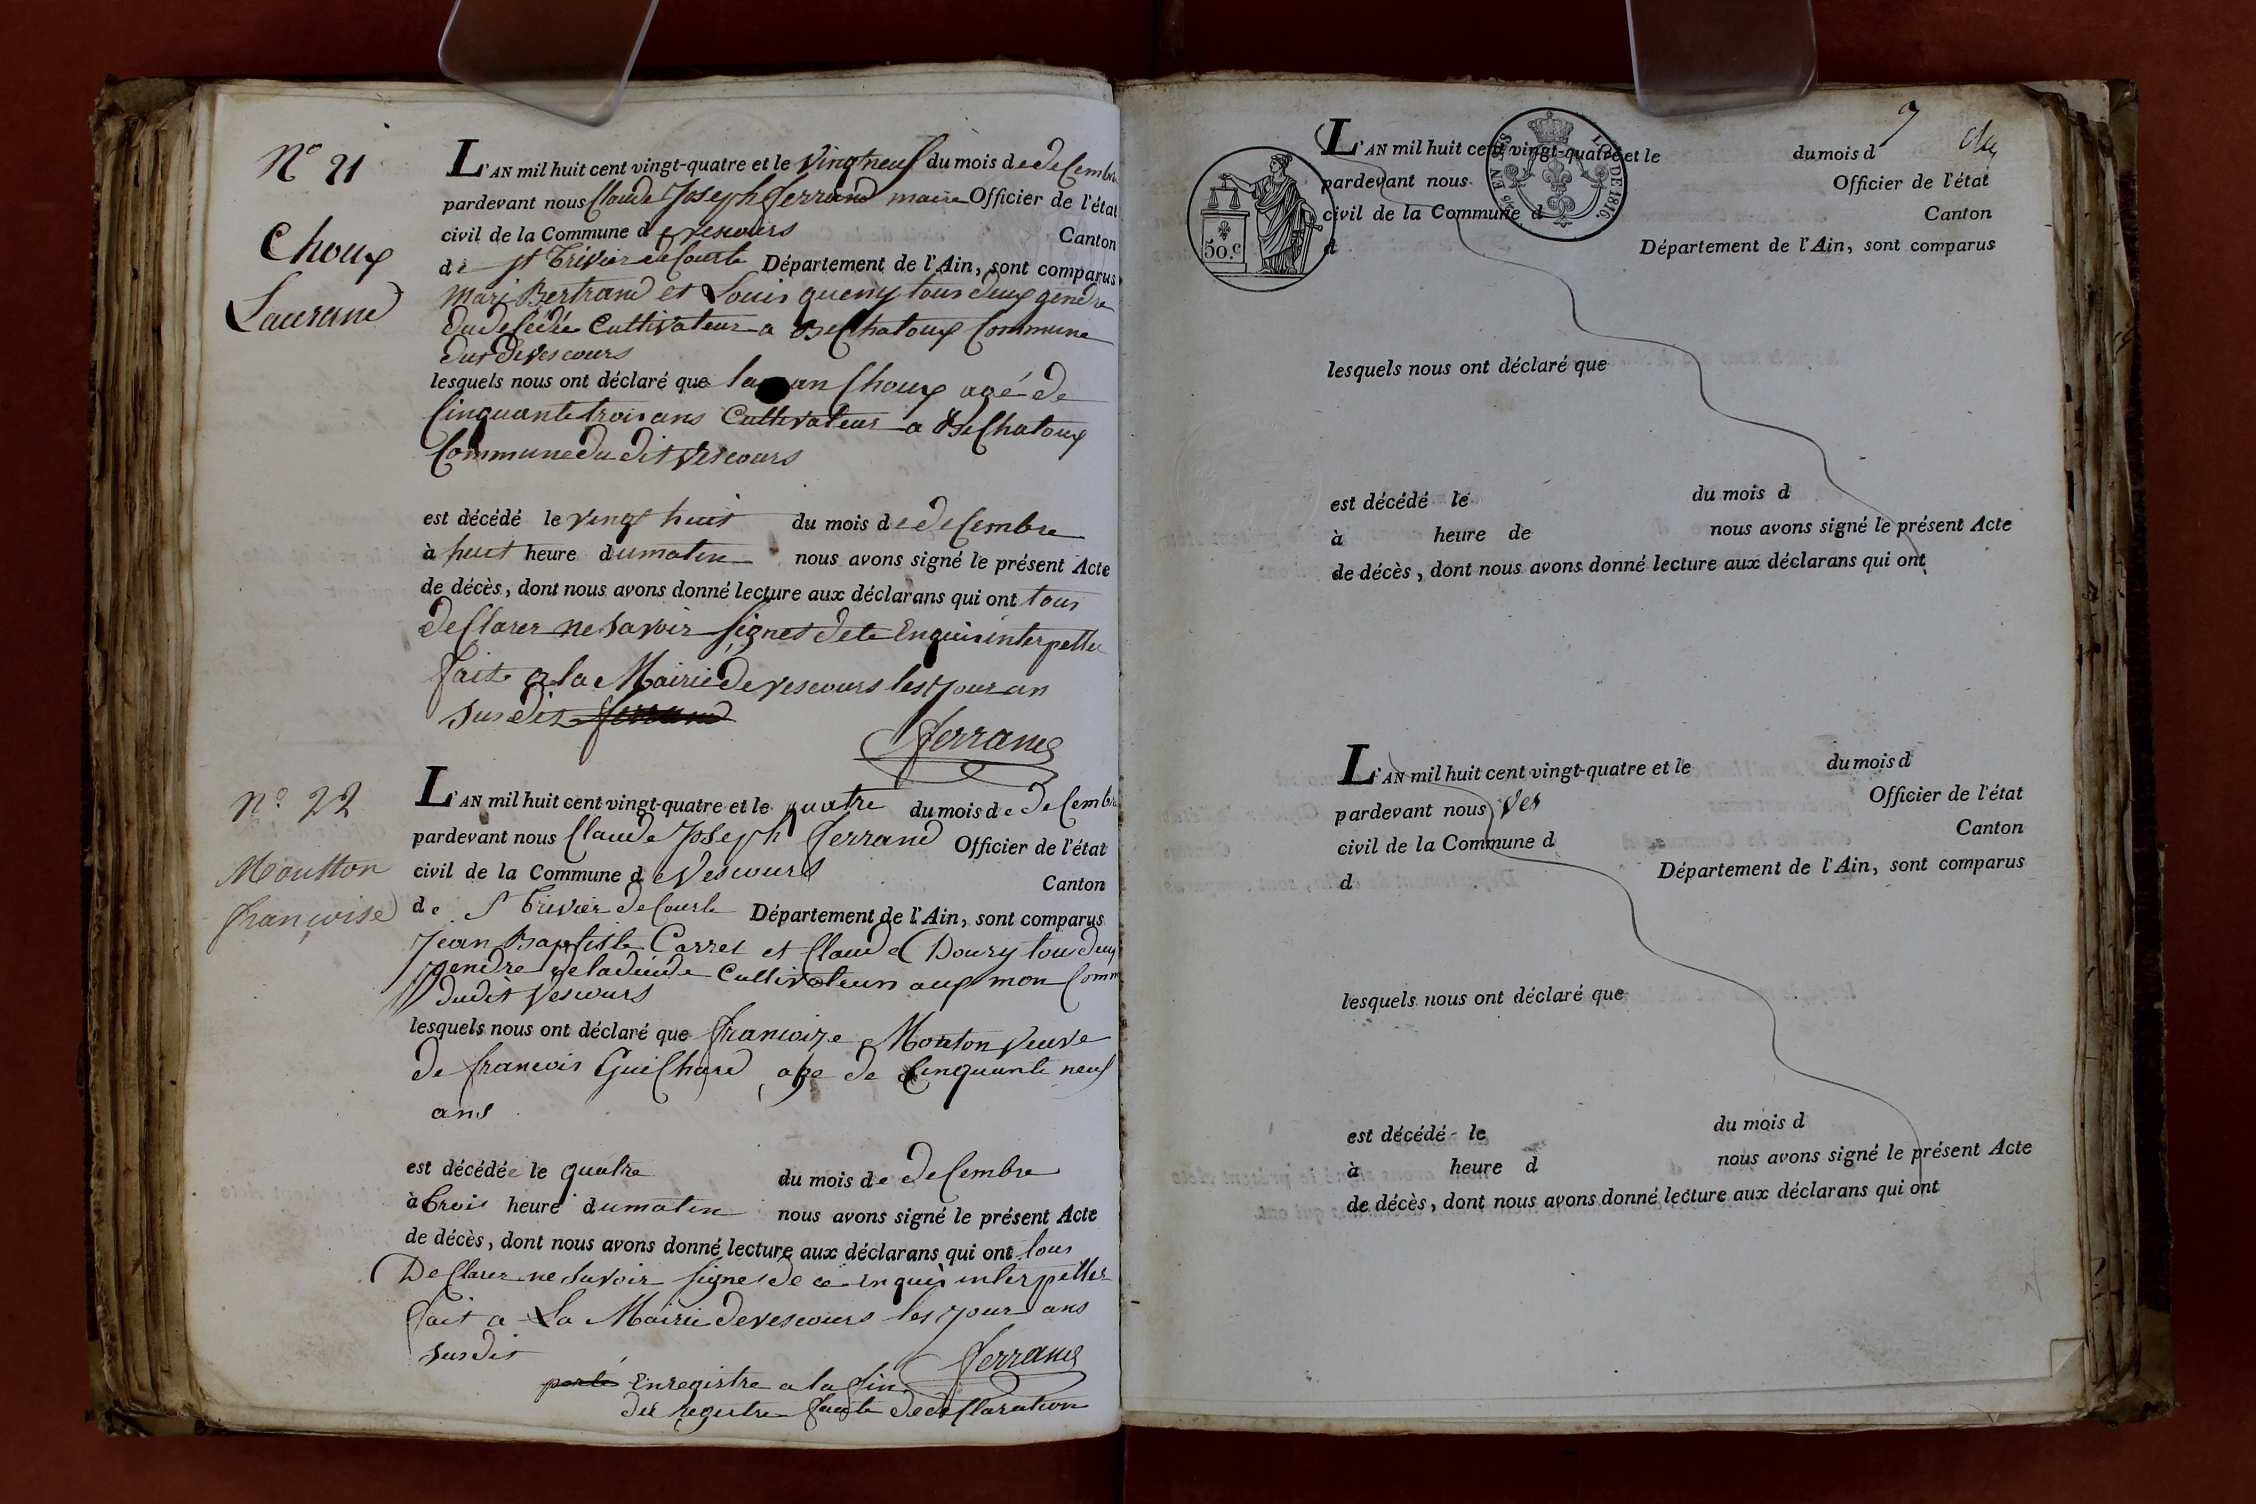 N° 21
Choux
Laurand
L'AN mil huit cent vingt-quatre et le vingtneuf du mois de deCembre
pardevant nous Claude Joseph ferrand maire Officier de l'état
civil de la Commune de vescours Canton
de st trivier de Courte Département de l'Ain, sont comparus
Mari Bertrand et Louis queny tous deux gendre
du deCédée Cultivateur a Chatoux Commune
dudit Vescours
lesquels nous ont déclaré que Choux agé de
Cinquante trois ans Cultivateur a Chatoux
Commune du dit Vescours
est décédé le vingt huit du mois de deCembre
à huit heure du matin nous avons signé le présent Acte
de décès, dont nous avons donné lecture aux déclarans qui ont tous
deClarer ne Savoir Signer de ce Enquis interpeller
fait a la Mairie de vescours les jour an
Susdit ferrand
ferrand
n° 22
Moutton
françoise
L'AN mil huit cent vingt-quatre et le quatre du mois de deCembre
pardevant nous Claude Joseph ferrand Officier de l'état
civil de la Commune de Vescours Canton
de St trivier de Courte Département de l'Ain, sont comparus
Jean Baptiste Carret et Claude Doury tou deux
gendre de la Cultivateurs aux mon Comm
dudit Vescours
lesquels nous ont déclaré que francoize Mouton veuve
de francois Guichard age de Cinquante neuf
ans
est décédée le quatre du mois de deCembre
à trois heure du matin nous avons signé le présent Acte
de décès, dont nous avons donné lecture aux déclarans qui ont tous
DeClarer ne Savoir Signer de ce enquis interpeller
fait a La Mairie de vescours les jour ans
Susdit
ferrand
porté Enregistre a la fin
du registre faute de deClaration
50.c
LOI DE 1816.
L'AN mil huit cent vingt-quatre et le du mois d
pardevant nous Officier de l'état
civil de la Commune d Canton
d Département de l'Ain, sont comparus
lesquels nous ont déclaré que
est décédé le du mois d
à heure de nous avons signé le présent Acte
de décès, dont nous avons donné lecture aux déclarans qui ont
L'AN mil huit cent vingt-quatre et le du mois d
pardevant nous Ves Officier de l'état
civil de la Commune d Canton
d Département de l'Ain, sont comparus
lesquels nous ont déclaré que
est décédé le du mois d
à heure d nous avons signé le présent Acte
de décès, dont nous avons donné lecture aux déclarans qui ont